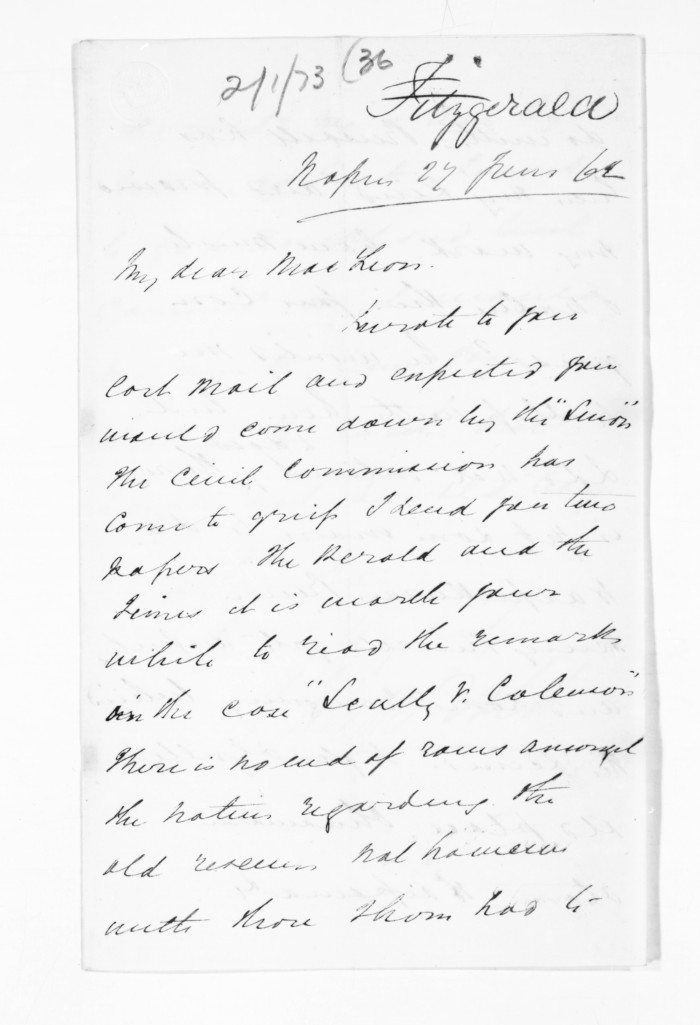 2/1/73 (36
Fitzgerald
Napier 27 June 62
My dear Mac Lean.
I wrote to you
last mail and expected you
would come down by the "
the Civil Commission has
come to grief I send you two
papers the Herald and the
Times it is worth your
while to read the remarks
in the case "Scally V. Coleman"
There is no end of rows amongst
the natives regarding the
old reserves not however
with those Thom had to